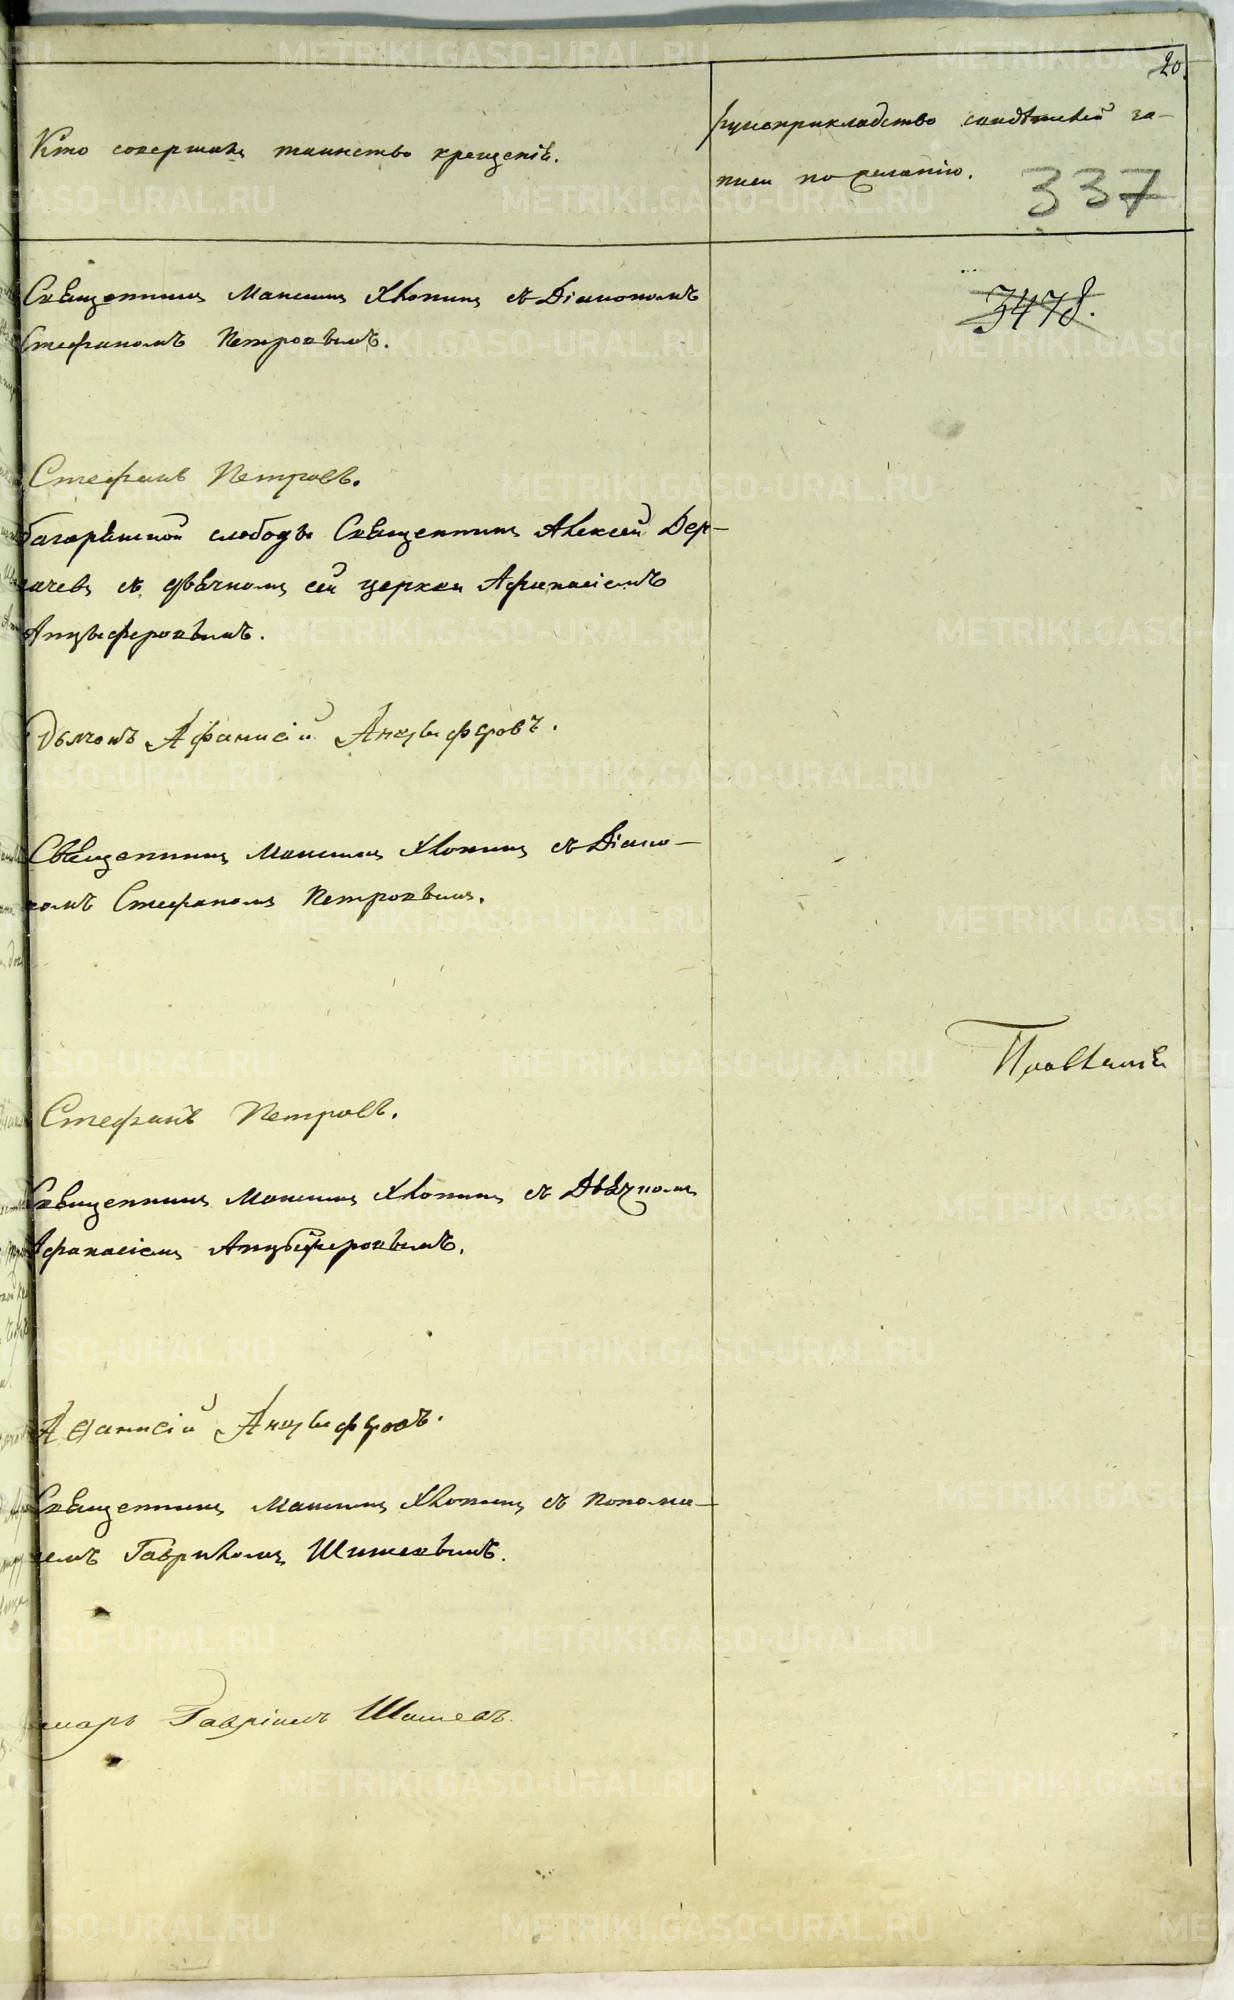 20.
Кто совершалъ таинство крещенія.
рукоприкладство свидѣтелей за-
писи по желанію.
337
Священникъ Максимъ Хлопинъ съ Діакономъ
Стефаномъ Петровымъ.
3478.
Стефанъ Петровъ.
Багаряцкой слободы Священникъ Алексей Дер-
гачевъ съ дьячкомъ сей церкви Афанасіемъ
Анцыферовымъ.
Дьячокъ Афанасій Анцыферовъ.
Священникъ Максимъ Хлопинъ съ Діако-
номъ Стефаномъ Петровымъ.
Стефанъ Петровъ.
Священникъ Максимъ Хлопинъ съ Дьячкомъ
Афанасіемъ Анцыферовымъ.
Афанасій Анцыферовъ.
Священникъ Максимъ Хлопинъ съ Понома-
ремъ Гавриломъ Шишевымъ.
номарь Гавріилъ Шишевъ.
METRIKI.GASO-URAL.RU